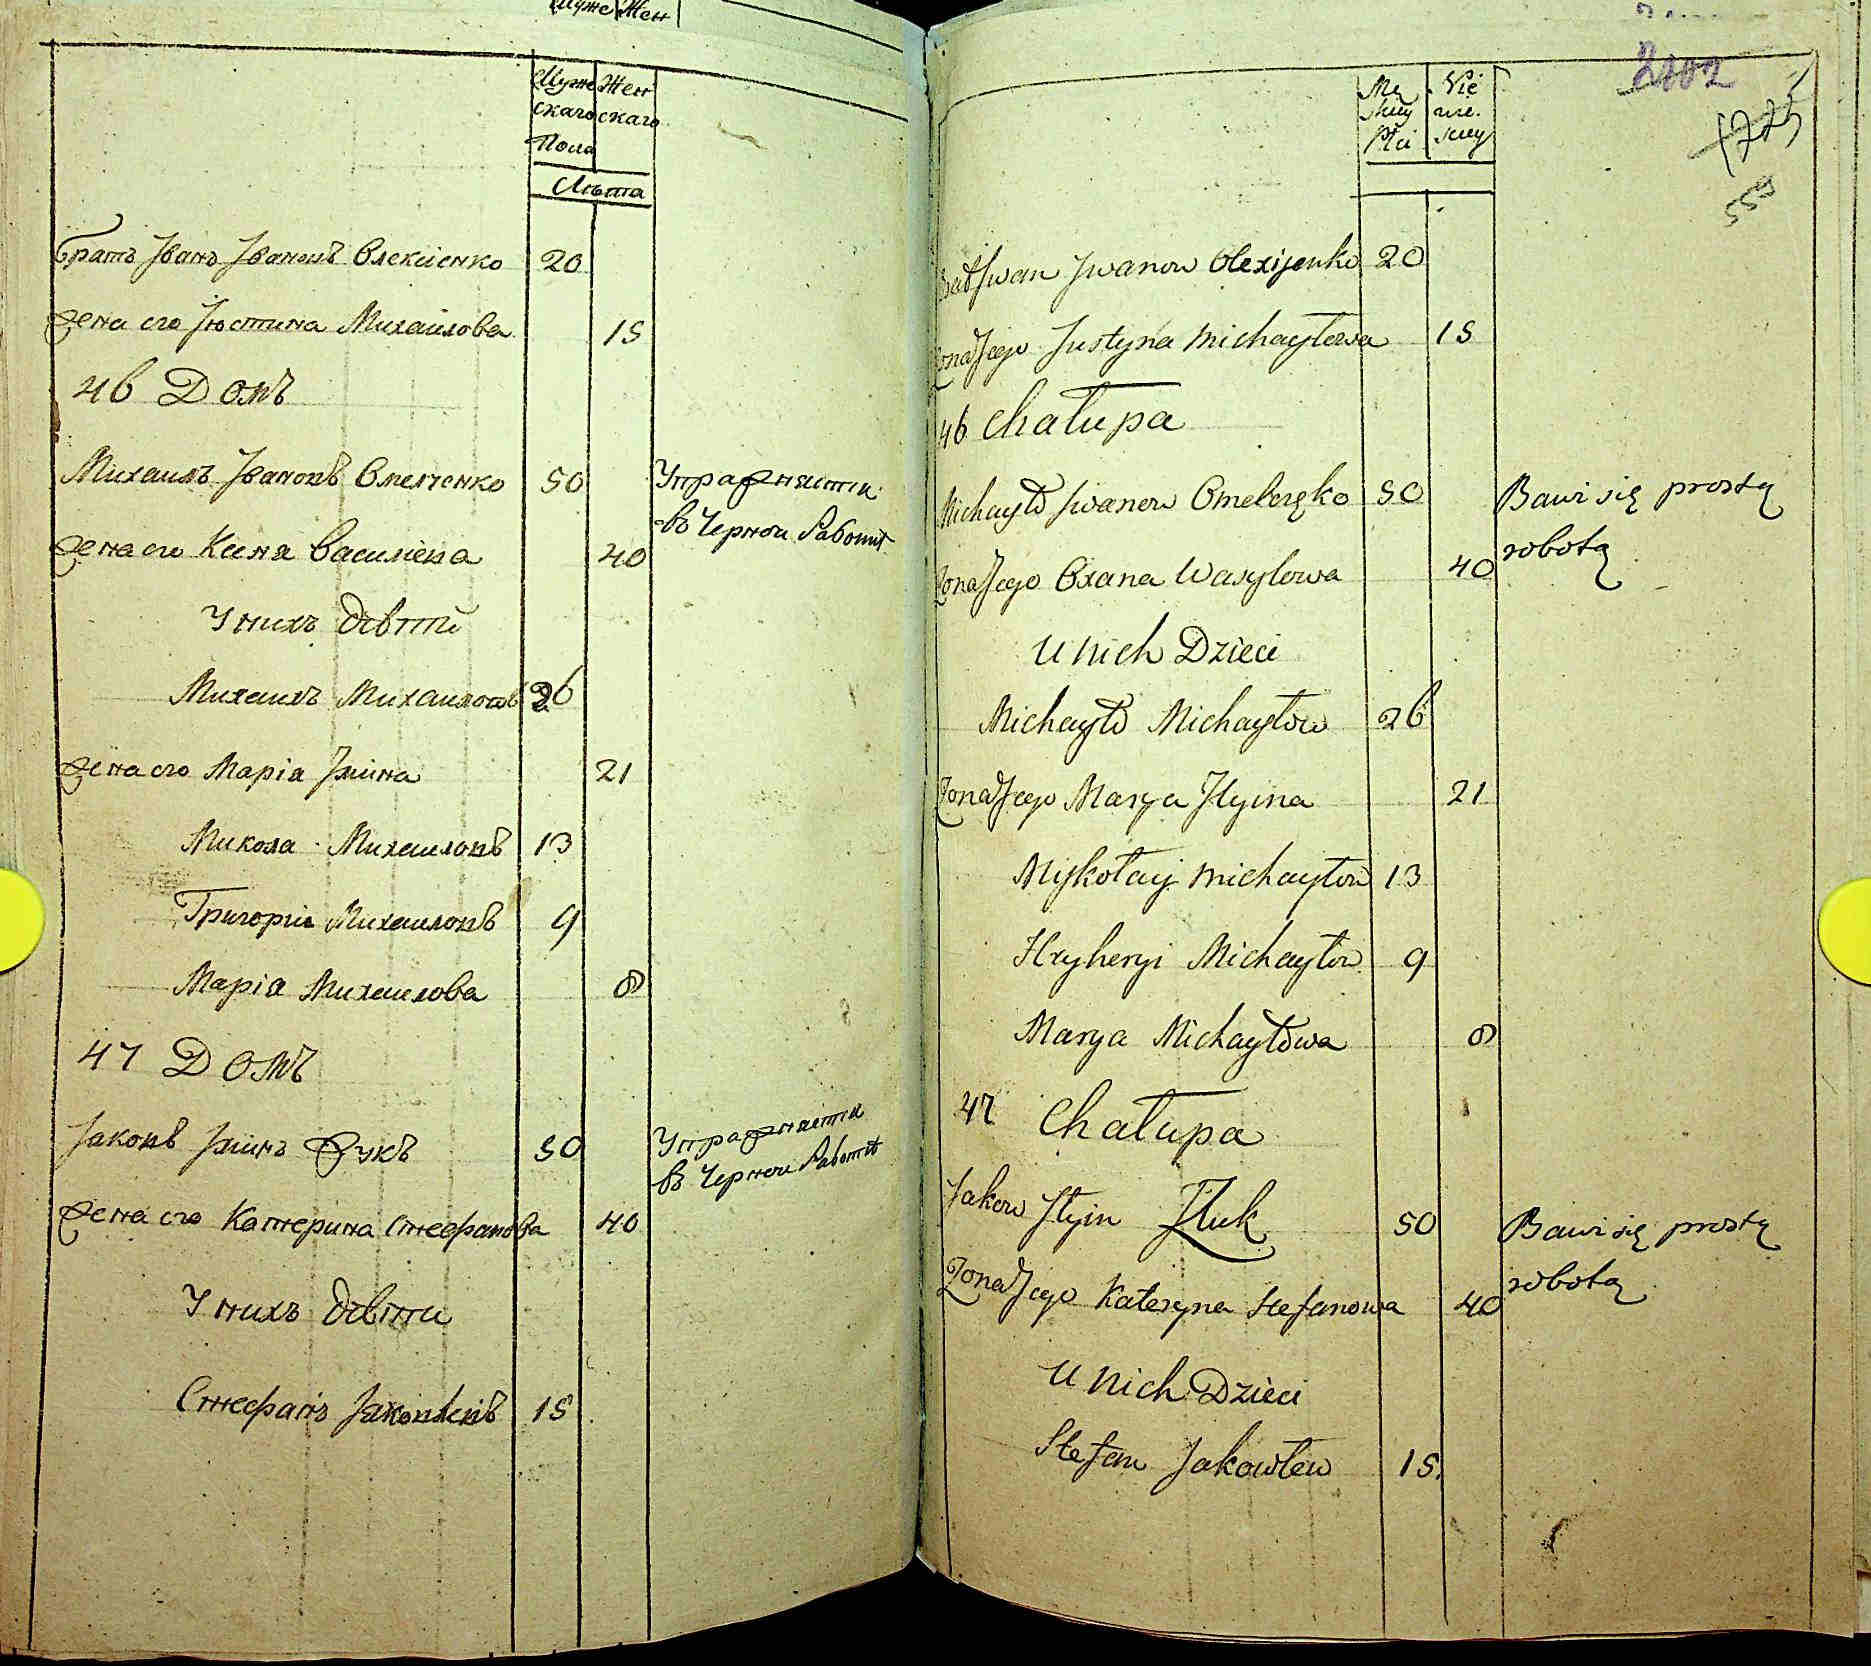 Муже Жен
Муже Жен
скаго скаго
Пола
Лѣта
братъ Іванъ Івановъ Олексіенко 20
жена его Іюстина Михаилова 15
46 Домъ
Михаилъ Івановъ Омелченко 50 Упражняети
въ Черной Работѣ
жена его Ксеня Василіева 40
У нихъ дѣтти
Михаилъ Михаиловъ 26
жена его Маріа Ілїина 21
Микола Михаиловъ 13
Григорїи Михаиловъ 9
Маріа Михаилова 8
47 Домъ
Іаковъ Ілїинъ Жукъ 50 Упражняети
въ Черной Работѣ
жена его Катерина Стефанова 40
У нихъ дѣтти
Стефанъ Іаковлевъ 15
2402
1775
559
Mę Nie
skiey wie.
Płci skiey
Brat Jwan Jwanow Olexijenko 20
Zona Jego Justyna Michayłowa 15
46 Chałupa
Michayło Jwanow Omelczęko 50 Bawi się prostą
robotą
Zona Jego Oxana Wasylowa 40
U nich Dzieci
Michayło Michayłow 26
Zona Jego Marya Jlyina 21
Mykołay Michayłow 13
Hryhoryi Michayłow 9
Marya Michayłowa 8
47 Chałupa
Jakow Jlyin Zuk 50 Bawi się prostą
robotą
Zona Jego Kateryna Stefanowa 40
U nich Dzieci
Stefan Jakowlew 15.